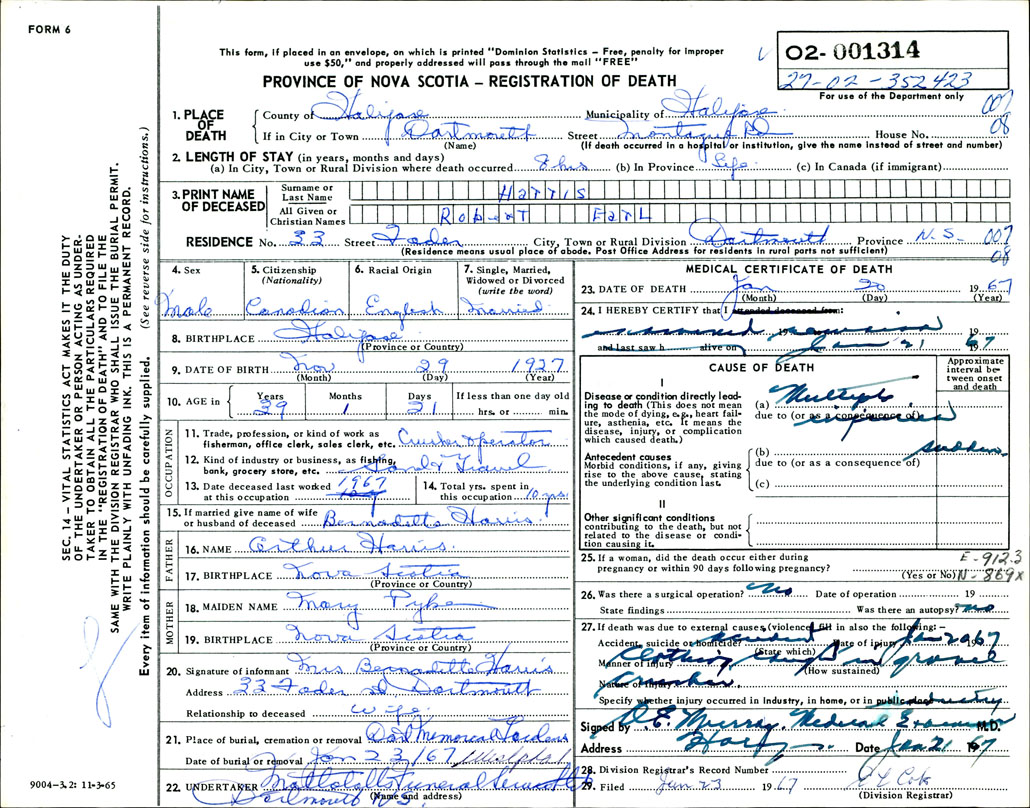 FORM 6
This form, if placed in an envelope, on which is printed "Dominion Statistics – Free, penalty for improper
use $50," and properly addressed will pass through the mail "FREE"
PROVINCE OF NOVA SCOTIA – REGISTRATION OF DEATH
02- 001314
27-02-352423
For use of the Department only
007
08
1. PLACE OF DEATH
County of Halifax Municipality of Halifax
If in City or Town Dartmouth Street Montague Rd House No.
(Name) (If death occurred in a hospital or institution, give the name instead of street and number)
2. LENGTH OF STAY (in years, months and days)
(a) In City, Town or Rural Division where death occurred 8 hrs (b) In Province Life (c) In Canada (if immigrant)
3. PRINT NAME OF DECEASED
Surname or Last Name Harris
All Given or Christian Names Robert Earl
RESIDENCE No. 33 Street Fader City, Town or Rural Division Dartmouth Province N.S. 007
08
(Residence means usual place of abode. Post Office Address for residents in rural parts not sufficient)
4. Sex
Male
5. Citizenship
(Nationality)
Canadian
6. Racial Origin
English
7. Single, Married,
Widowed or Divorced
(write the word)
Married
8. BIRTHPLACE Halifax
(Province or Country)
9. DATE OF BIRTH Nov 29 1927
(Month) (Day) (Year)
10. AGE in Years Months Days If less than one day old
39 1 21 hrs. or min.
OCCUPATION
11. Trade, profession, or kind of work as
fisherman, office clerk, sales clerk, etc. Crusher operator
12. Kind of industry or business, as fishing,
bank, grocery store, etc. Sand & Gravel
13. Date deceased last worked
at this occupation 1967
14. Total yrs. spent in
this occupation 10 yrs.
15. If married give name of wife
or husband of deceased Bernadette Harris
FATHER
16. NAME Arthur Harris
17. BIRTHPLACE Nova Scotia
(Province or Country)
MOTHER
18. MAIDEN NAME Mary Pyke
19. BIRTHPLACE Nova Scotia
(Province or Country)
20. Signature of informant Mrs. Bernadette Harris
Address 33 Fader St Dartmouth
Relationship to deceased Wife
21. Place of burial, cremation or removal Dart Memorial Gardens
Date of burial or removal Jan 23/67
22. UNDERTAKER Mattatall Funeral Service Ltd
Dartmouth N.S.
(Name and address)
MEDICAL CERTIFICATE OF DEATH
23. DATE OF DEATH Jan 20 1967
(Month) (Day) (Year)
24. I HEREBY CERTIFY that I attended deceased from:
examined 19 19
and last saw h alive on Jan 21 1967
CAUSE OF DEATH
Approximate
interval be-
tween onset
and death
I
Disease or condition directly lead-
ing to death (This does not mean
the mode of dying, e.g., heart fail-
ure, asthenia, etc. It means the
disease, injury, or complication
which caused death.)
(a) Multiple
due to (or as a consequence of)
injuries
Antecedent causes
Morbid conditions, if any, giving
rise to the above cause, stating
the underlying condition last.
(b) sudden
due to (or as a consequence of)
(c)
II
Other significant conditions
contributing to the death, but not
related to the disease or condi-
tion causing it.
25. If a woman, did the death occur either during
pregnancy or within 90 days following pregnancy?
(Yes or No)
E-912.3
N-869X
26. Was there a surgical operation? No Date of operation 19
State findings Was there an autopsy? No
27. If death was due to external causes (violence) fill in also the following:–
Accident, suicide or homicide? accident Date of injury Jan 20 1967
(State which)
Manner of injury Clothing caught in gravel
(How sustained)
Nature of injury crusher
Specify whether injury occurred in Industry, in home, or in public place industry
Signed by D.E. Murray, Medical Examiner M.D.
Address Date Jan 21 1967
28. Division Registrar's Record Number
29. Filed Jan 23 1967
(Division Registrar)
SEC. 14 – VITAL STATISTICS ACT MAKES IT THE DUTY
OF THE UNDERTAKER OR PERSON ACTING AS UNDER-
TAKER TO OBTAIN ALL THE PARTICULARS REQUIRED
IN THE "REGISTRATION OF DEATH" AND TO FILE THE
SAME WITH THE DIVISION REGISTRAR WHO SHALL ISSUE THE BURIAL PERMIT.
WRITE PLAINLY WITH UNFADING INK. THIS IS A PERMANENT RECORD.
Every item of information should be carefully supplied. (See reverse side for instructions.)
9004–3.2: 11-3-65